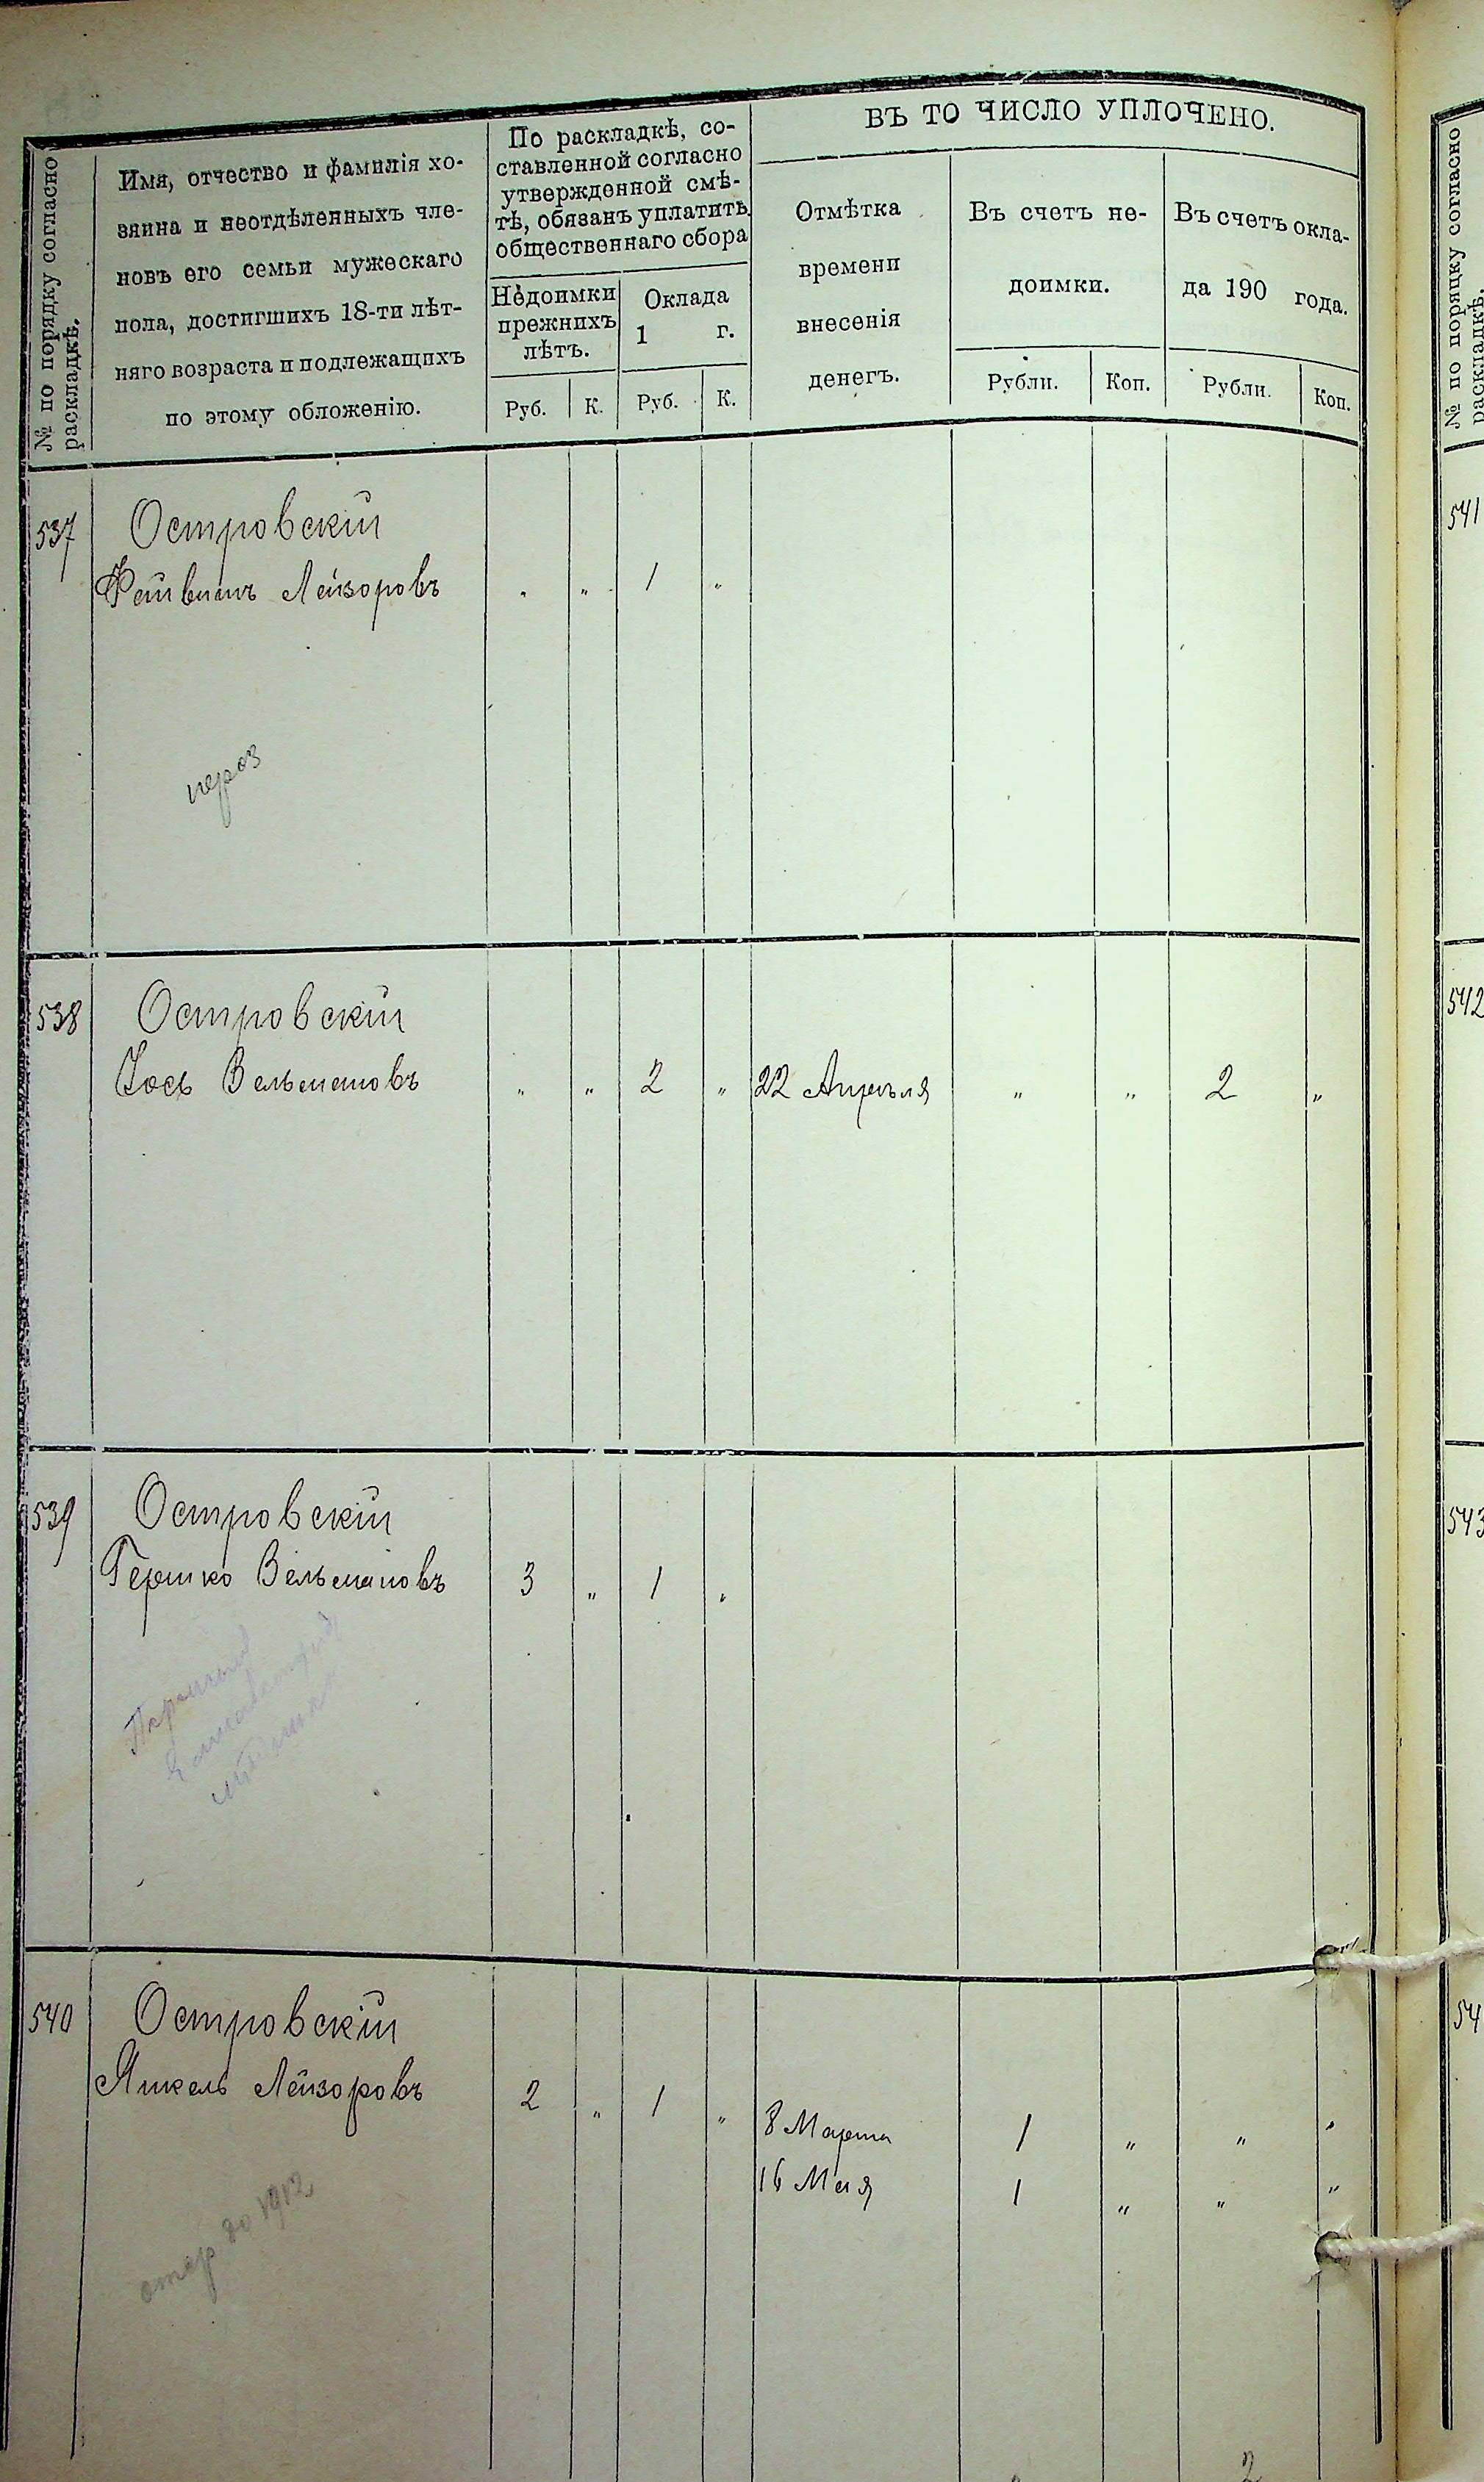 № по порядку согласно
раскладкѣ.
Имя, отчество и фамилія хо-
зяина и неотдѣленныхъ чле-
новъ его семьи мужескаго
пола, достигшихъ 18-ти лѣт-
няго возраста и подлежащихъ
по этому обложенію.
По раскладкѣ, со-
ставленной согласно
утвержденной смѣ-
тѣ, обязанъ уплатить
общественнаго сбора
Недоимки
прежнихъ
лѣтъ.
Оклада
1 г.
Руб. К. Руб. К.
ВЪ ТО ЧИСЛО УПЛОЧЕНО.
Отмѣтка
времени
внесенія
денегъ.
Въ счетъ не-
доимки.
Въ счетъ окла-
да 190 года.
Рубли. Коп. Рубли. Коп.
537 Островскій
Файвишъ Лейзоровъ " " 1 "
538 Островскій
Іось Вельмановъ " " 2 " 22 Апрѣля " " 2 "
539 Островскій
Гершко Вельмановъ 3 " 1 "
540 Островскій
Янкель Лейзоровъ 2 " 1 "
8 Марта 1 " " "
16 Мая 1 " " "
до 1912
2
№ по порядку согласно
раскладкѣ.
541
542
543
54